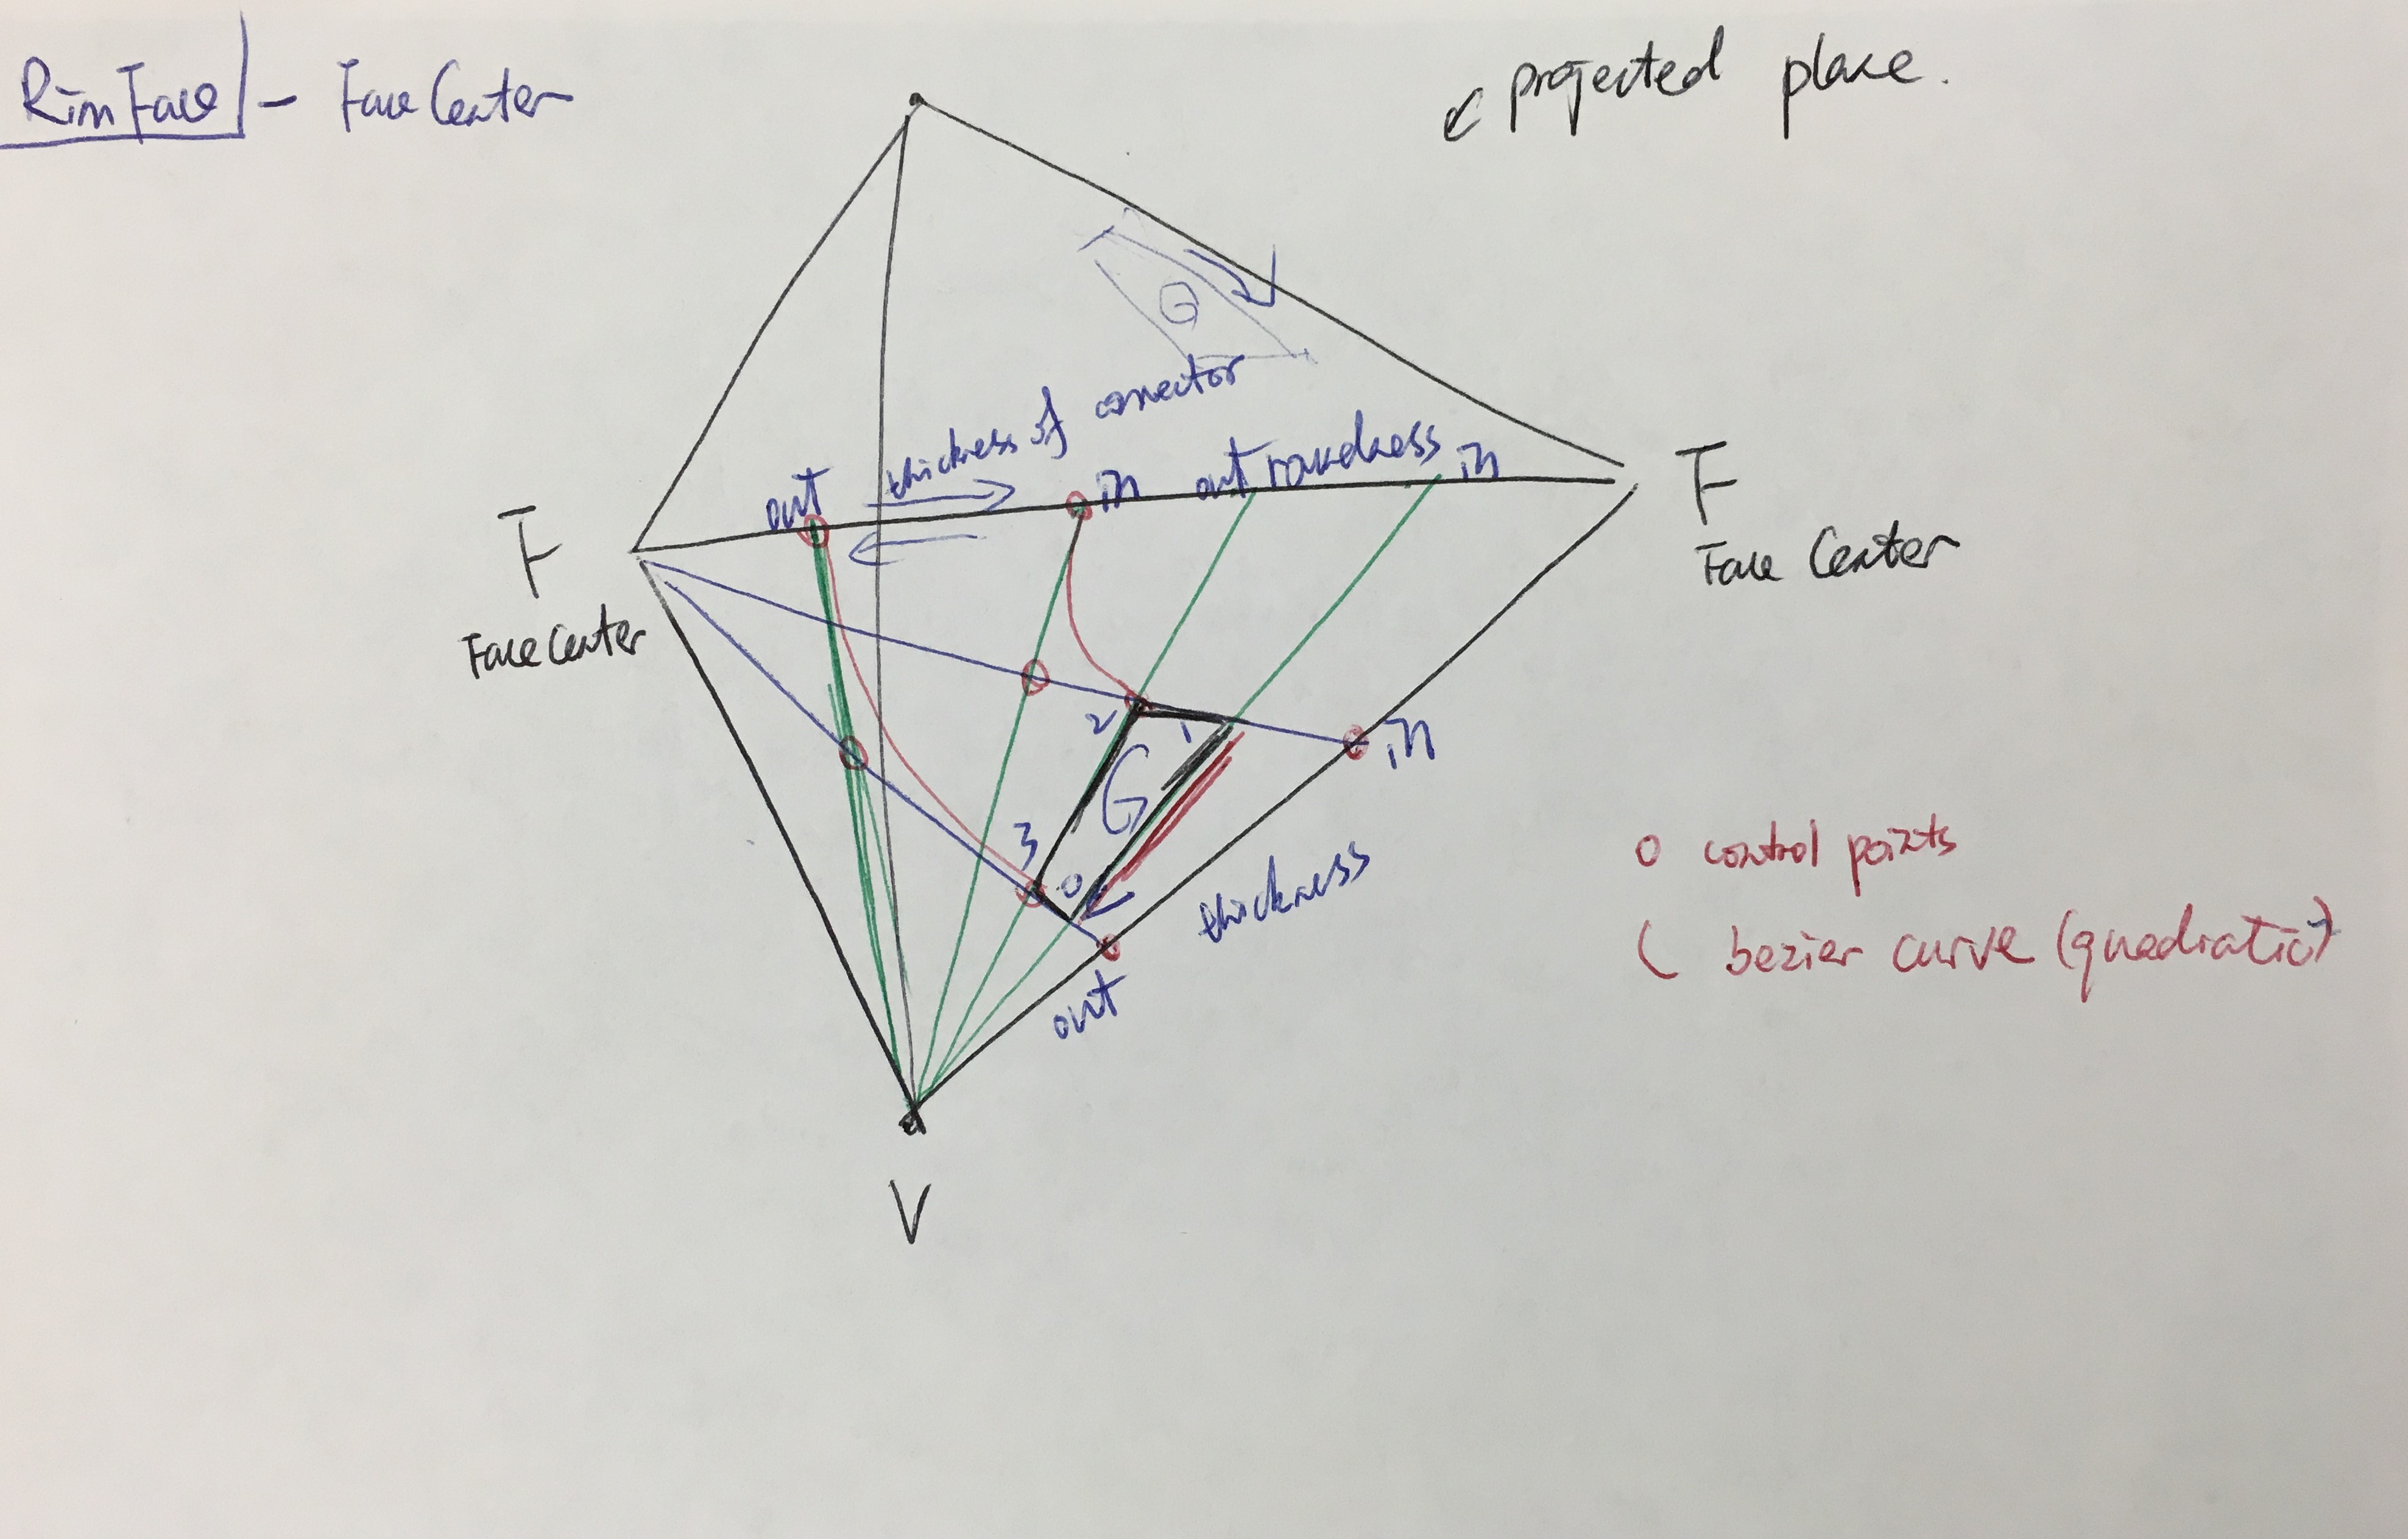 RimFace - Face Center
projected plane.
G
thickness of connector
out
in
out roundness in
F
Face Center
F
Face Center
2
1
in
G
3
0
thickness
out
V
o control points
( bezier curve (quadratic)